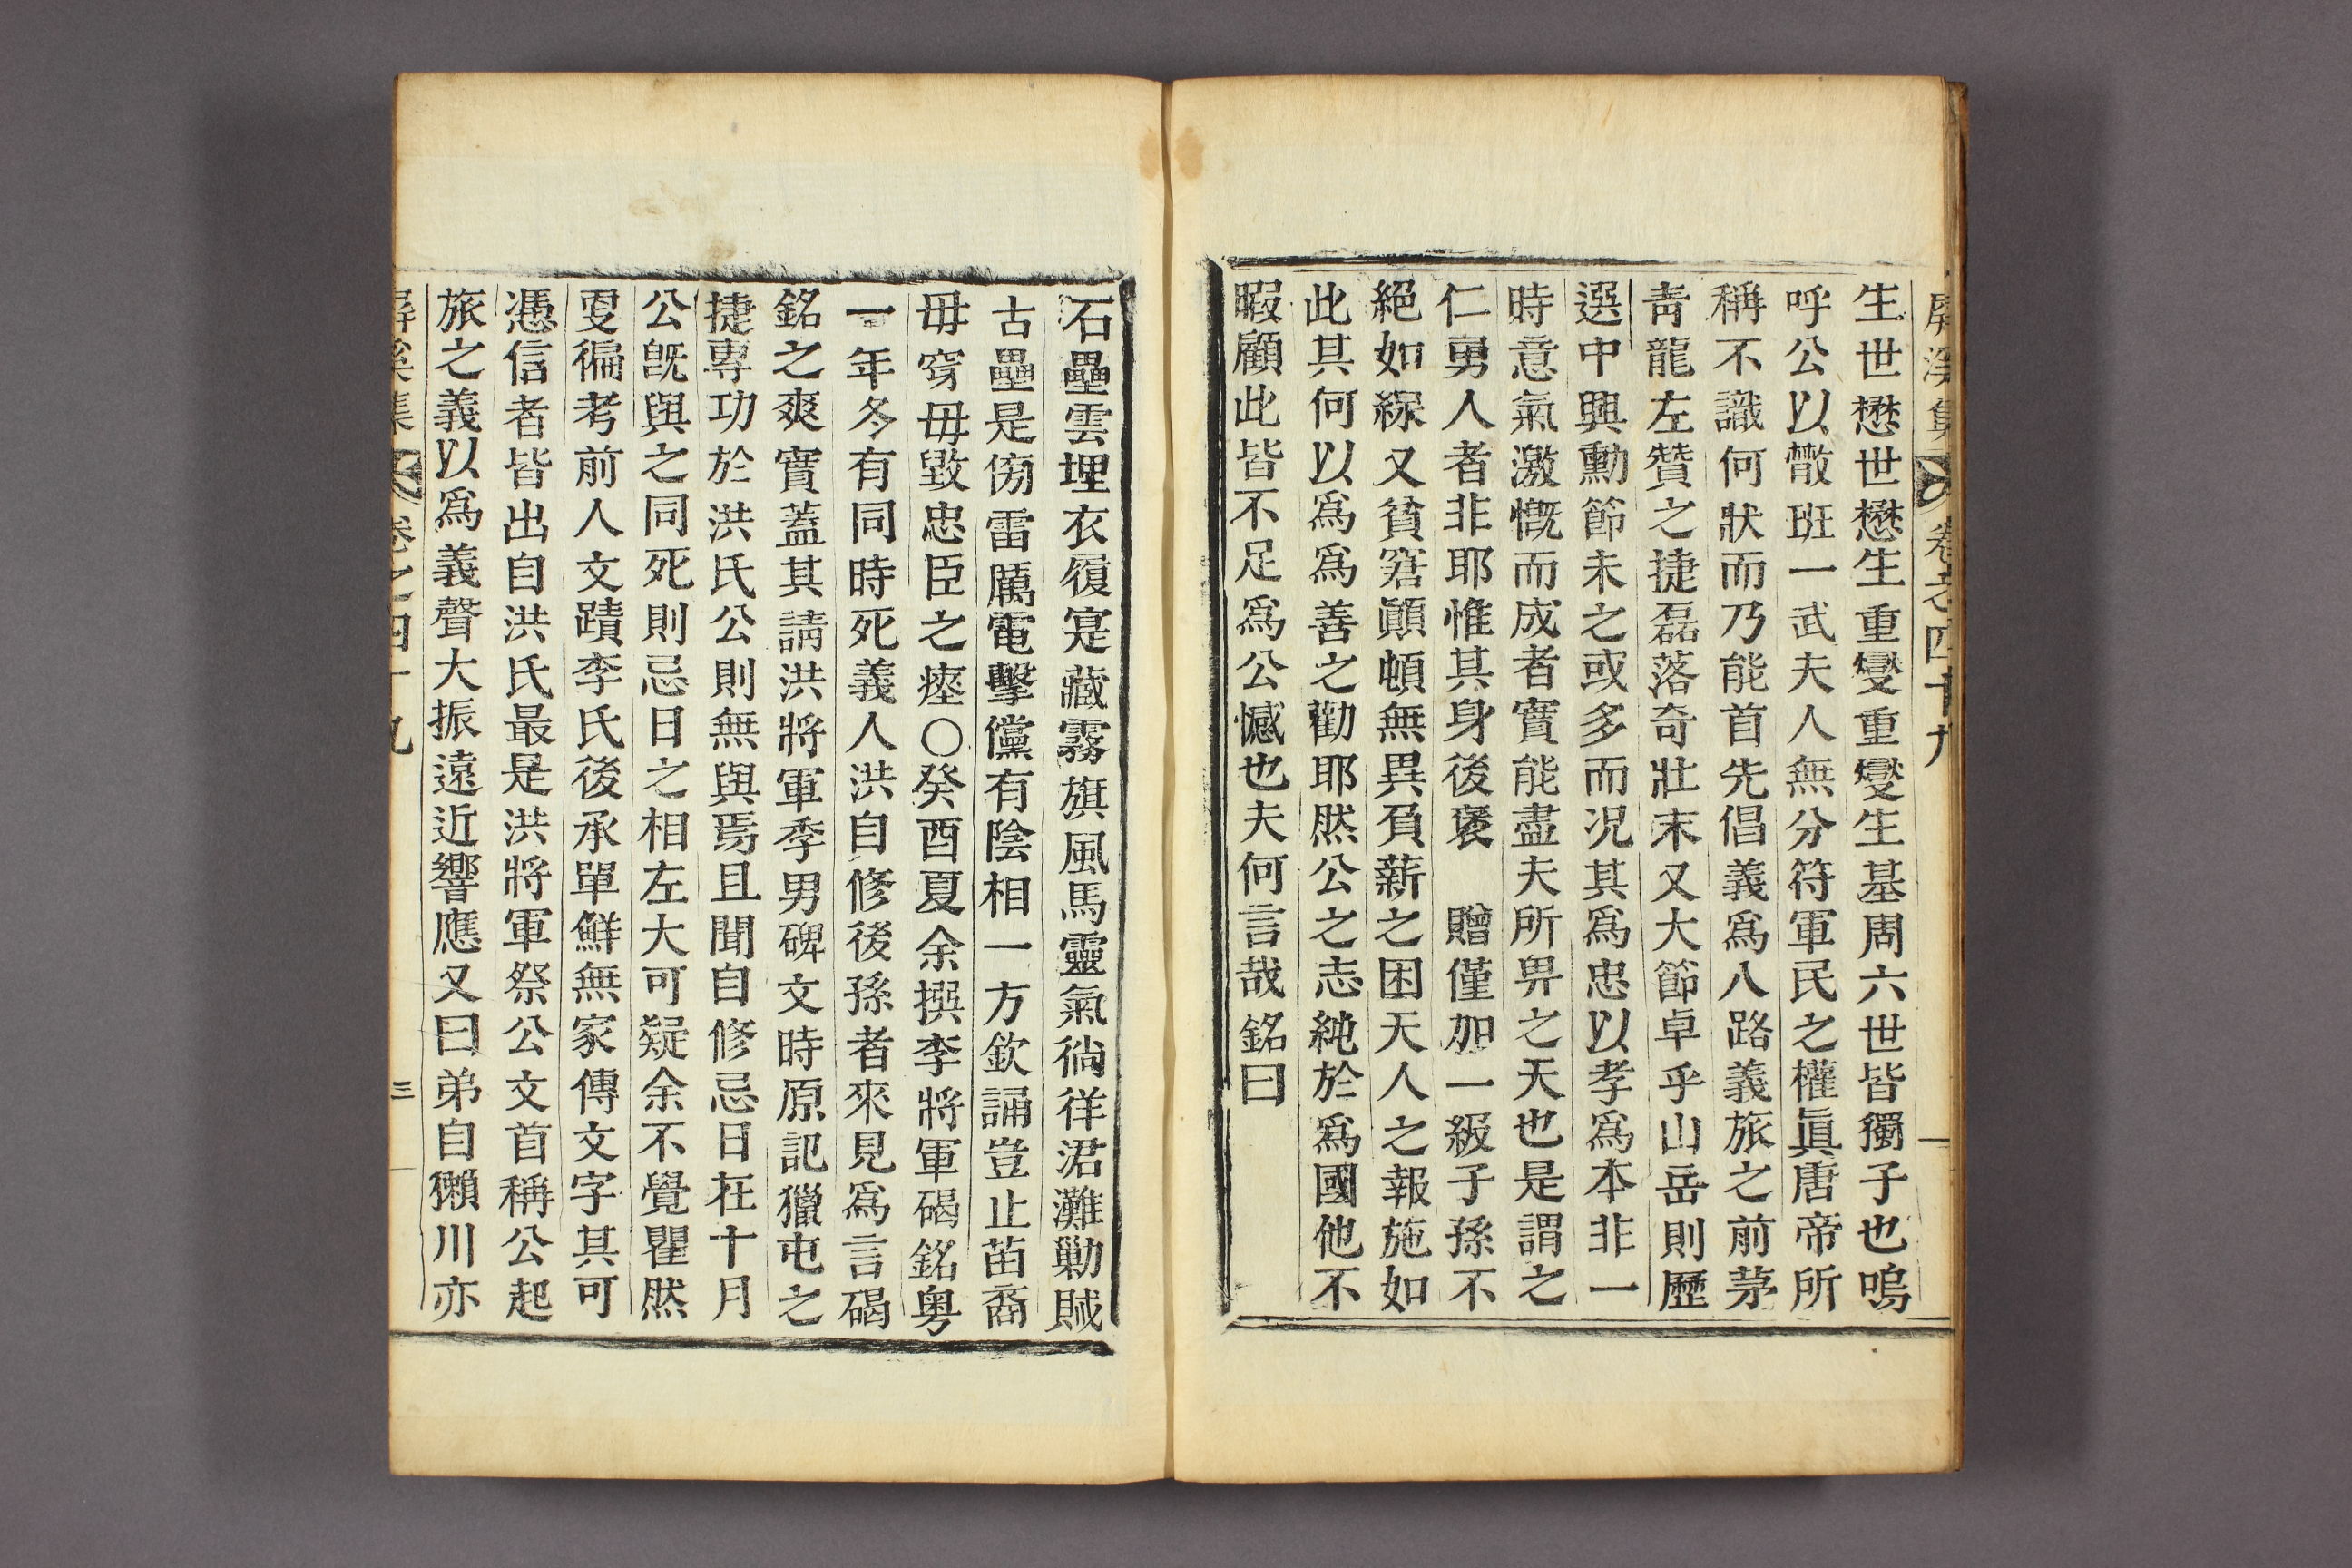 屛溪集 卷之四十九
生世懋世懋生重燮重燮生基周六世皆獨子也嗚
呼公以散班一武夫人無分符軍民之權眞唐帝所
稱不識何狀而乃能首先倡義爲八路義旅之前茅
靑龍左贊之捷磊落奇壯末又大節卓乎山岳則歷
選中興勳節未之或多而况其爲忠以孝爲本非一
時意氣激慨而成者實能盡夫所畀之天也是謂之
仁勇人者非耶惟其身後褒 贈僅加一級子孫不
絕如線又貧窘顚頓無異負薪之困天人之報施如
此其何以爲爲善之勸耶然公之志純於爲國他不
暇顧此皆不足爲公憾也夫何言哉銘曰
石壘雲埋衣履寔藏霧旗風馬靈氣徜徉涒灘勦賊
古壘是傍雷厲電擊儻有陰相一方欽誦豈止苗裔
毋穿毋毀忠臣之瘞○癸酉夏余撰李將軍碣銘粤
一年冬有同時死義人洪自修後孫者來見爲言碣
銘之爽實蓋其請洪將軍季男碑文時原記獵屯之
捷專功於洪氏公則無與焉且聞自修忌日在十月
公旣與之同死則忌日之相左大可疑余不覺瞿然
更徧考前人文蹟李氏後承單鮮無家傳文字其可
憑信者皆出自洪氏最是洪將軍祭公文首稱公起
旅之義以爲義聲大振遠近響應又曰弟自獺川亦
屛溪集 卷之四十九 三